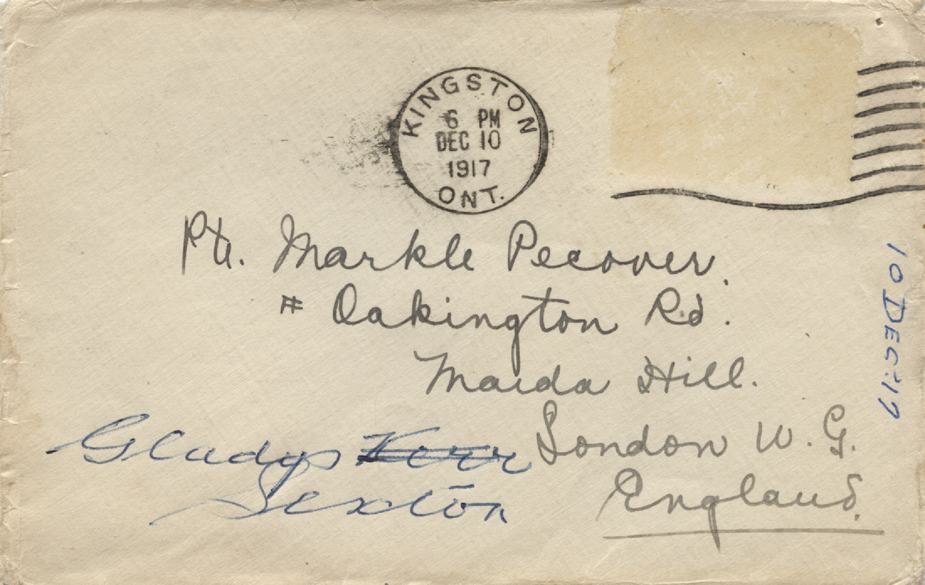 KINGSTON
6 PM
DEC 10
1917
ONT.
Pte. Markle Pecover.
# Oakington Rd.
Maida Hill.
London W. G.
England.
Gladys Kerr
Sexton
10 DEC '17